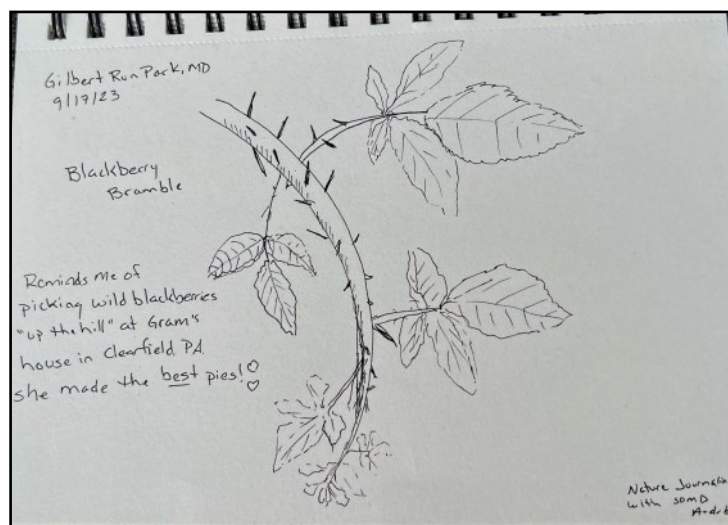 Gilbert Run Park, MD
9/17/23
Blackberry
Bramble
Reminds me of
picking wild blackberries
"up the hill" at Gram's
house in Clearfield PA
she made the best pies!
Nature
with SOMD